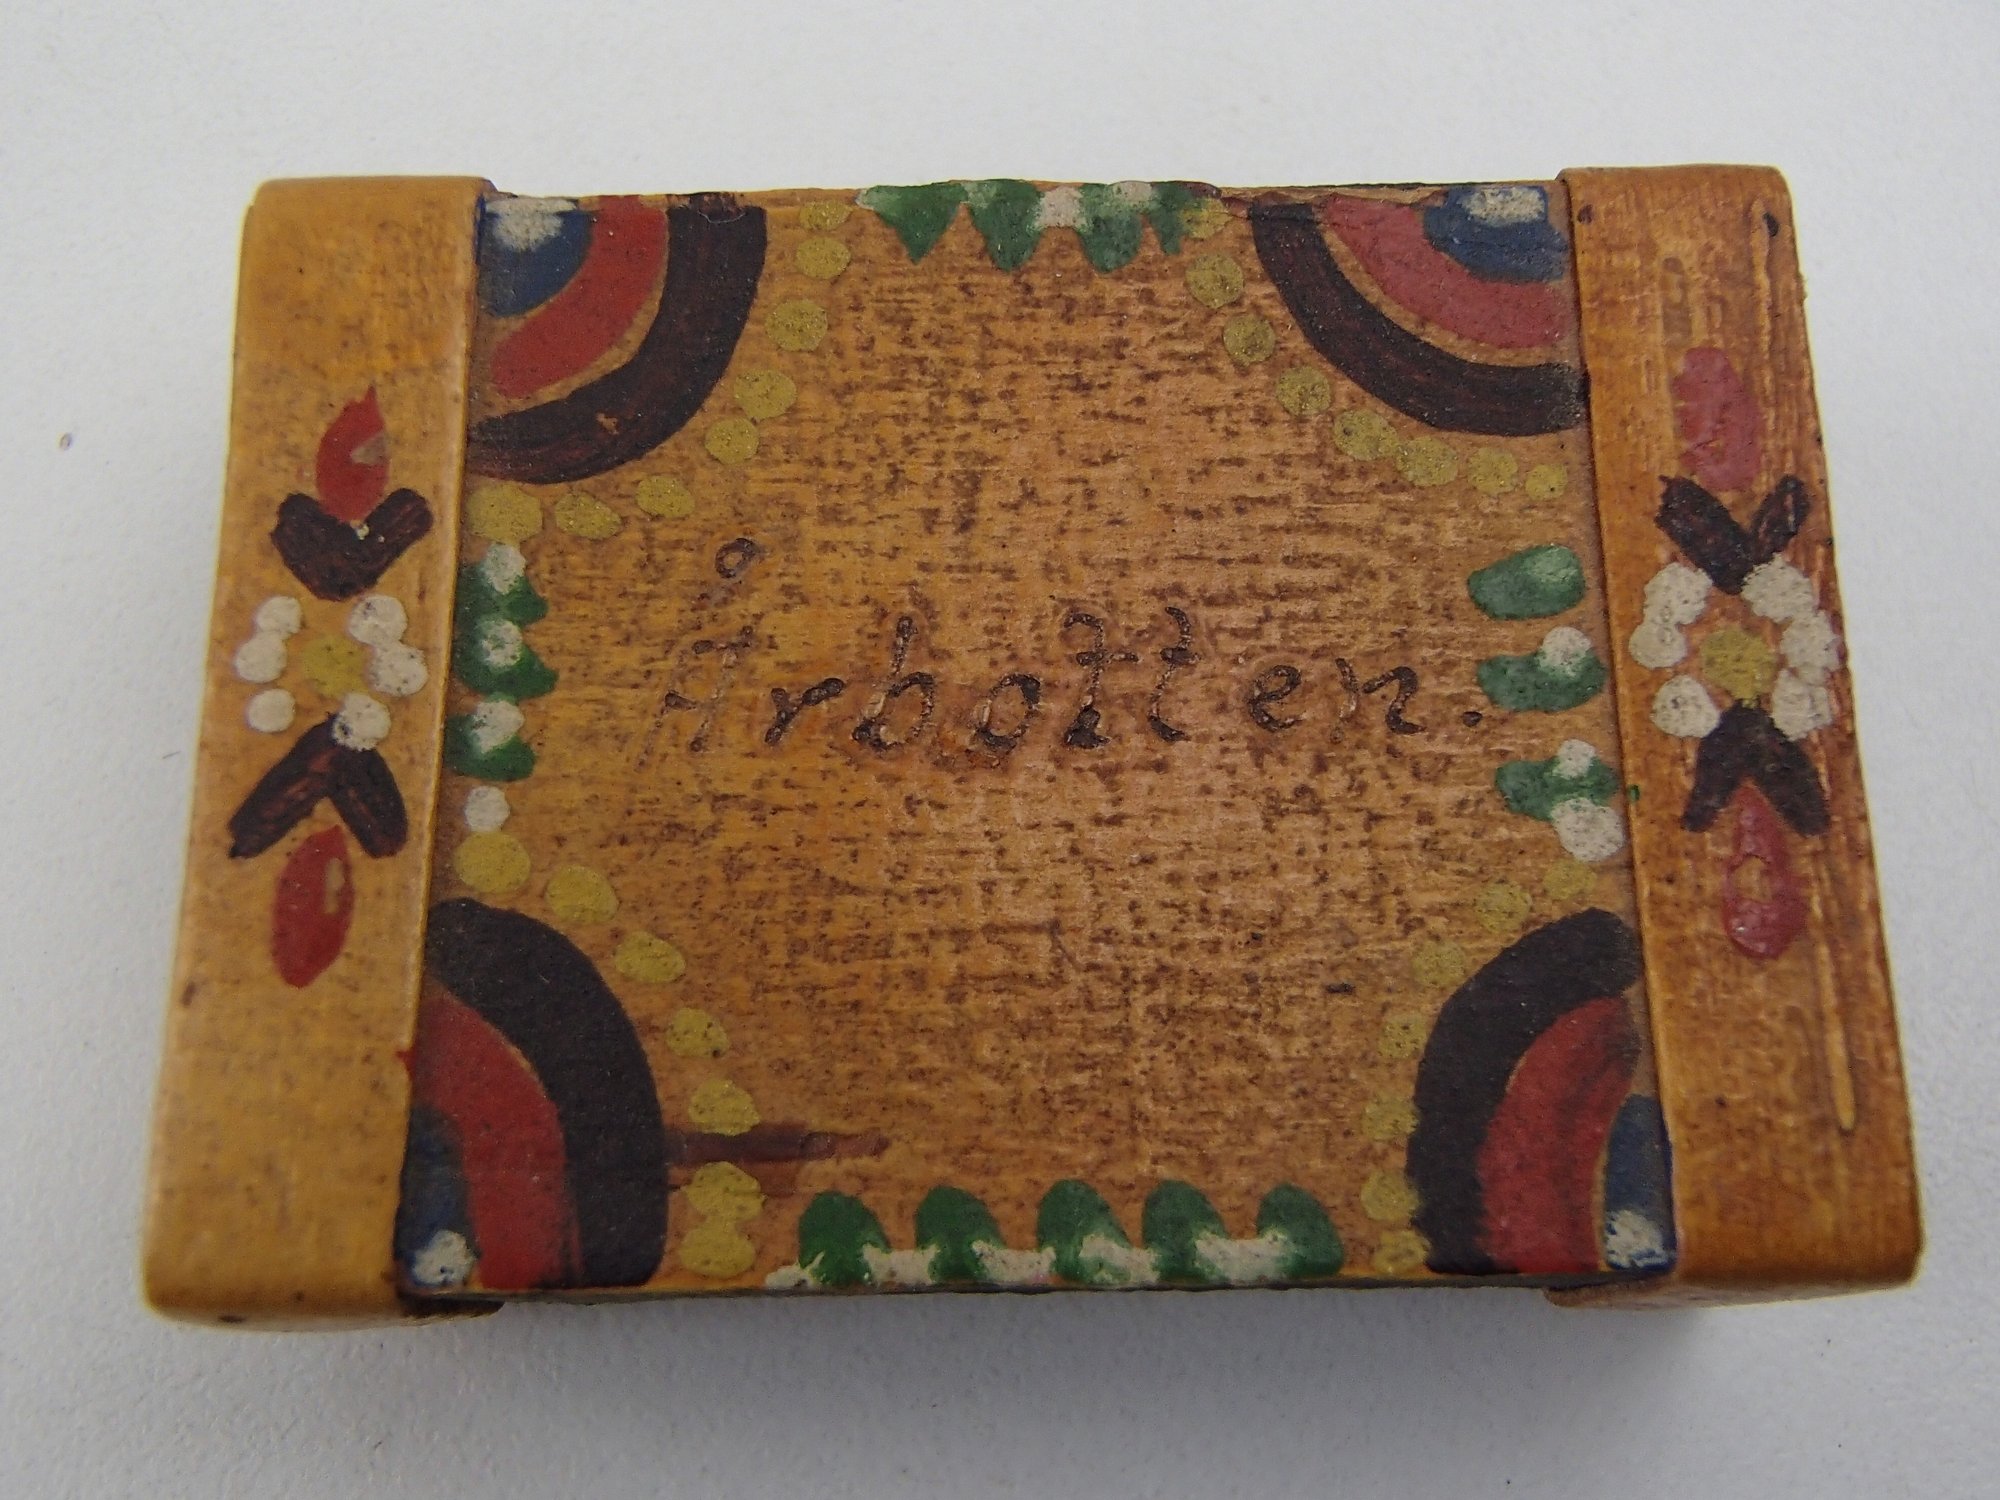 Årbotten.